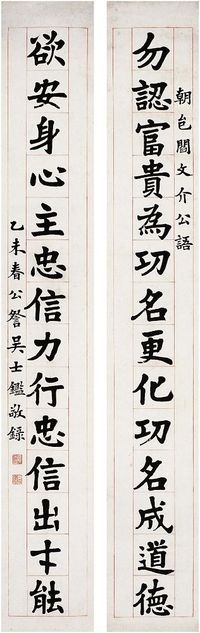 朝邑閻文介公語
勿認富貴為功名更化功名成道德
欲安身心主忠信力行忠信出才能
乙未春公詧吳士鑑敬錄